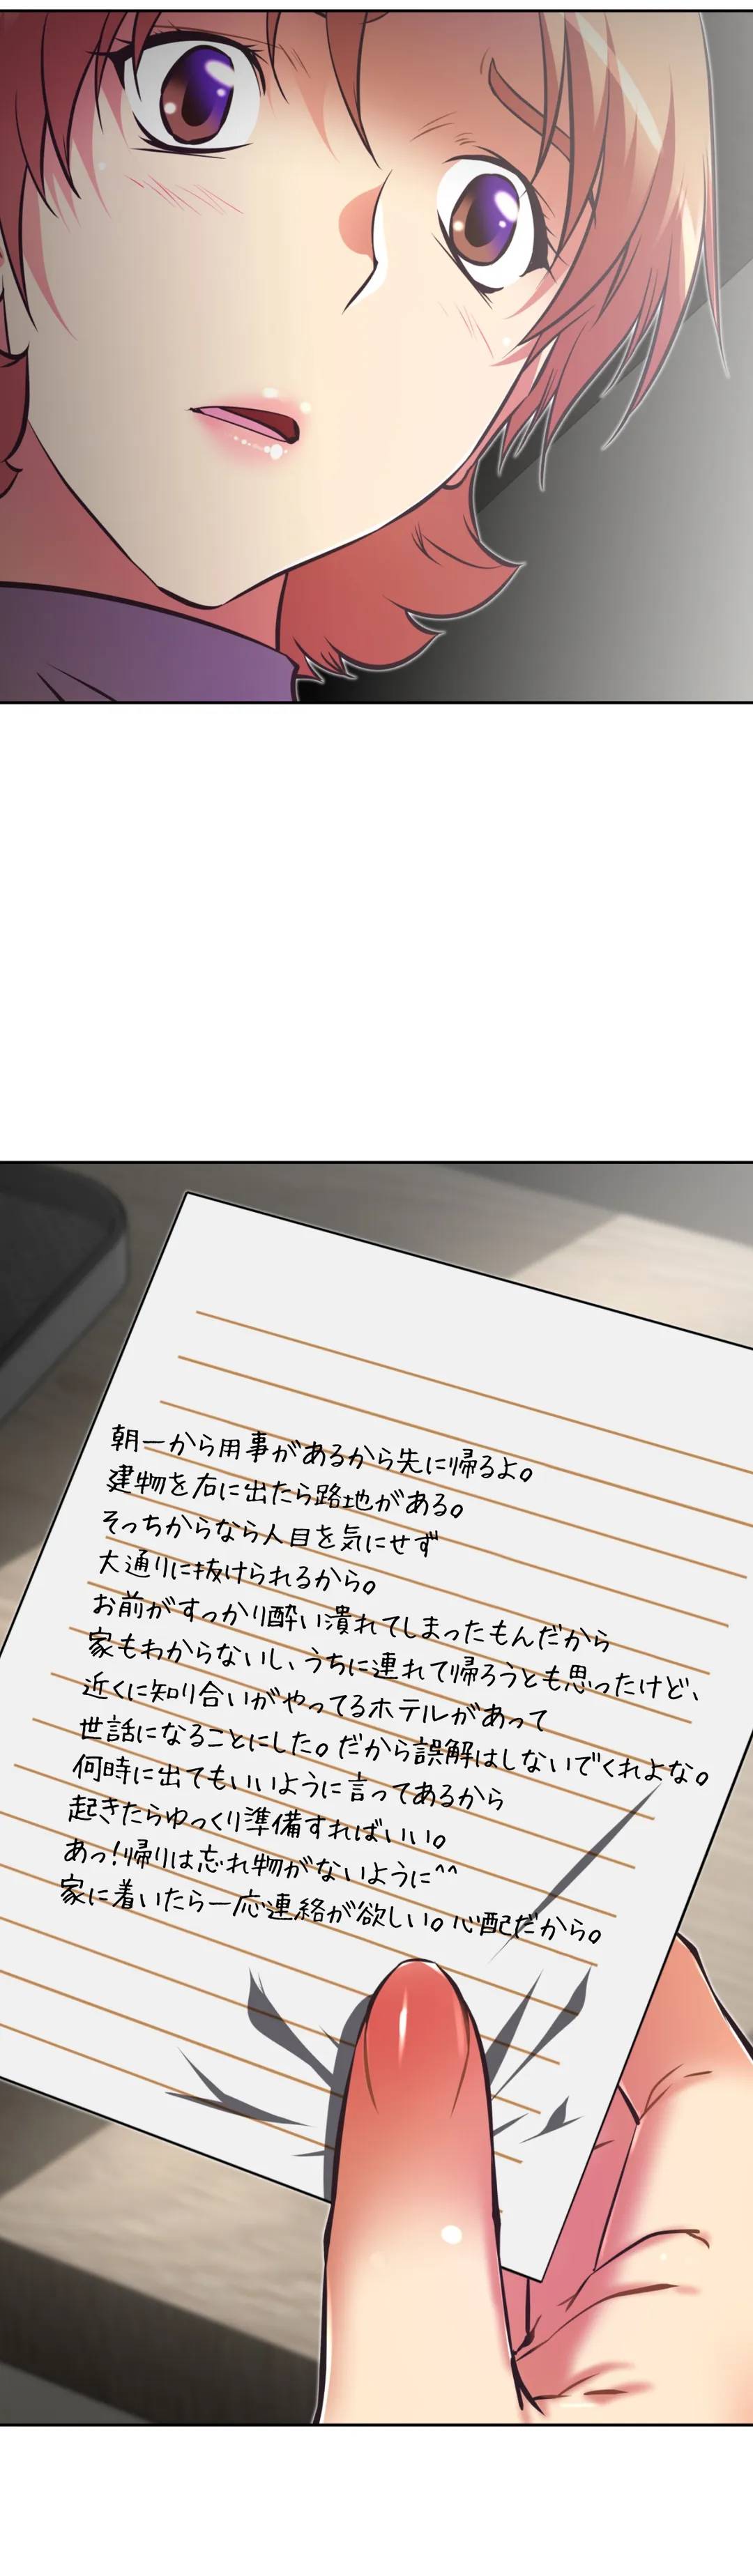 朝一から用事があるから先に帰るよ。
建物を右に出たら路地がある。
そっちからなら人目を気にせず
大通りに抜けられるから。
お前がすっかり酔い潰れてしまったもんだから
家もわからないし、うちに連れて帰ろうとも思ったけど、
近くに知り合いがやってるホテルがあって
世話になることにした。だから誤解はしないでくれよな。
何時に出てもいいように言ってあるから
起きたらゆっくり準備すればいい。
あっ!帰りは忘れ物がないように^^
家に着いたら一応連絡が欲しい。心配だから。